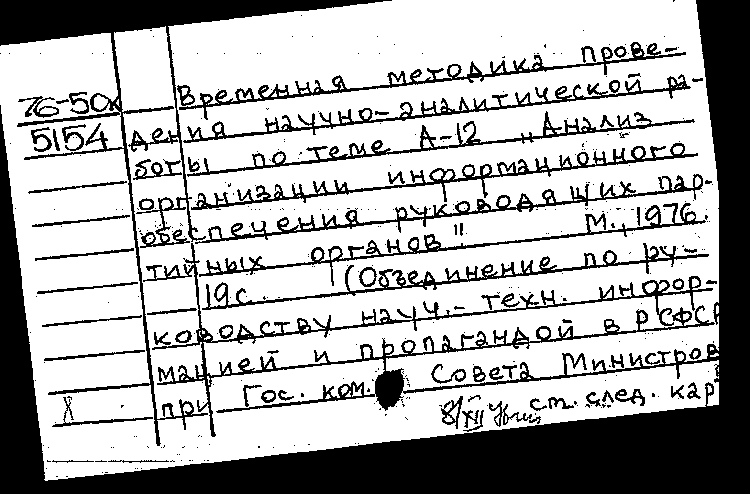 76-50к
5154
Временная методика прове-
дения научно-аналитической ра-
боты по теме А-12 „Анализ
организации информационного
обеспечения руководящих пар-
тийных органов" М., 1976.
19с. (Объединение по ру-
ководству науч.- техн. инфор-
мацией и пропагандой в РСФСР
при Гос. ком. Совета Министров
8/XII ст. след. кар